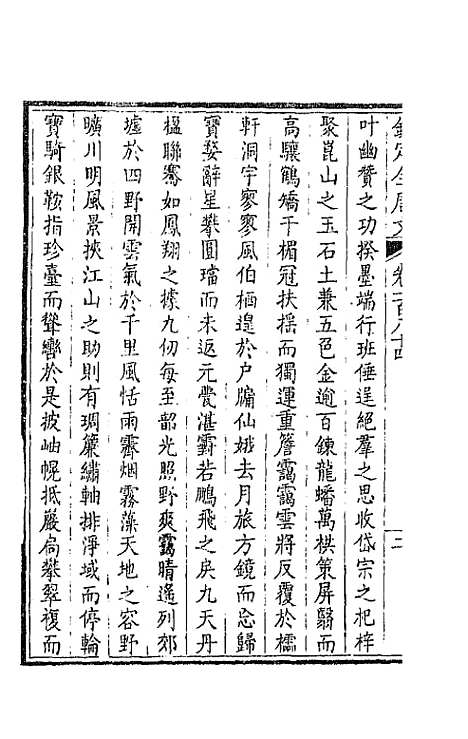 欽定全唐文　卷一百八十四　二
叶幽贊之功揆墨端行班倕逞絕羣之思收岱宗之杞梓
聚崑山之玉石土兼五色金逾百鍊龍蟠萬栱策屏翳而
高驤鶴矯千楣冠扶搖而獨運重簷靄靄雲將反覆於檽
軒洞宇寥寥風伯栖遑於户牖仙娥去月旅方鏡而忘歸
寶婺辭星攀圓璫而未返元甍湛霨若鵬飛之戾九天丹
楹聯騫如鳳翔之據九仞每至韶光照野爽靄晴遥列郊
墟於四野開雲氣於千里風恬雨霽烟霧藻天地之容野
曠川明風景挾江山之助則有琱簾繡軸排淨域而停輪
寶騎銀鞍指珍臺而聳轡於是披岫幌抵巖扃攀翠複而